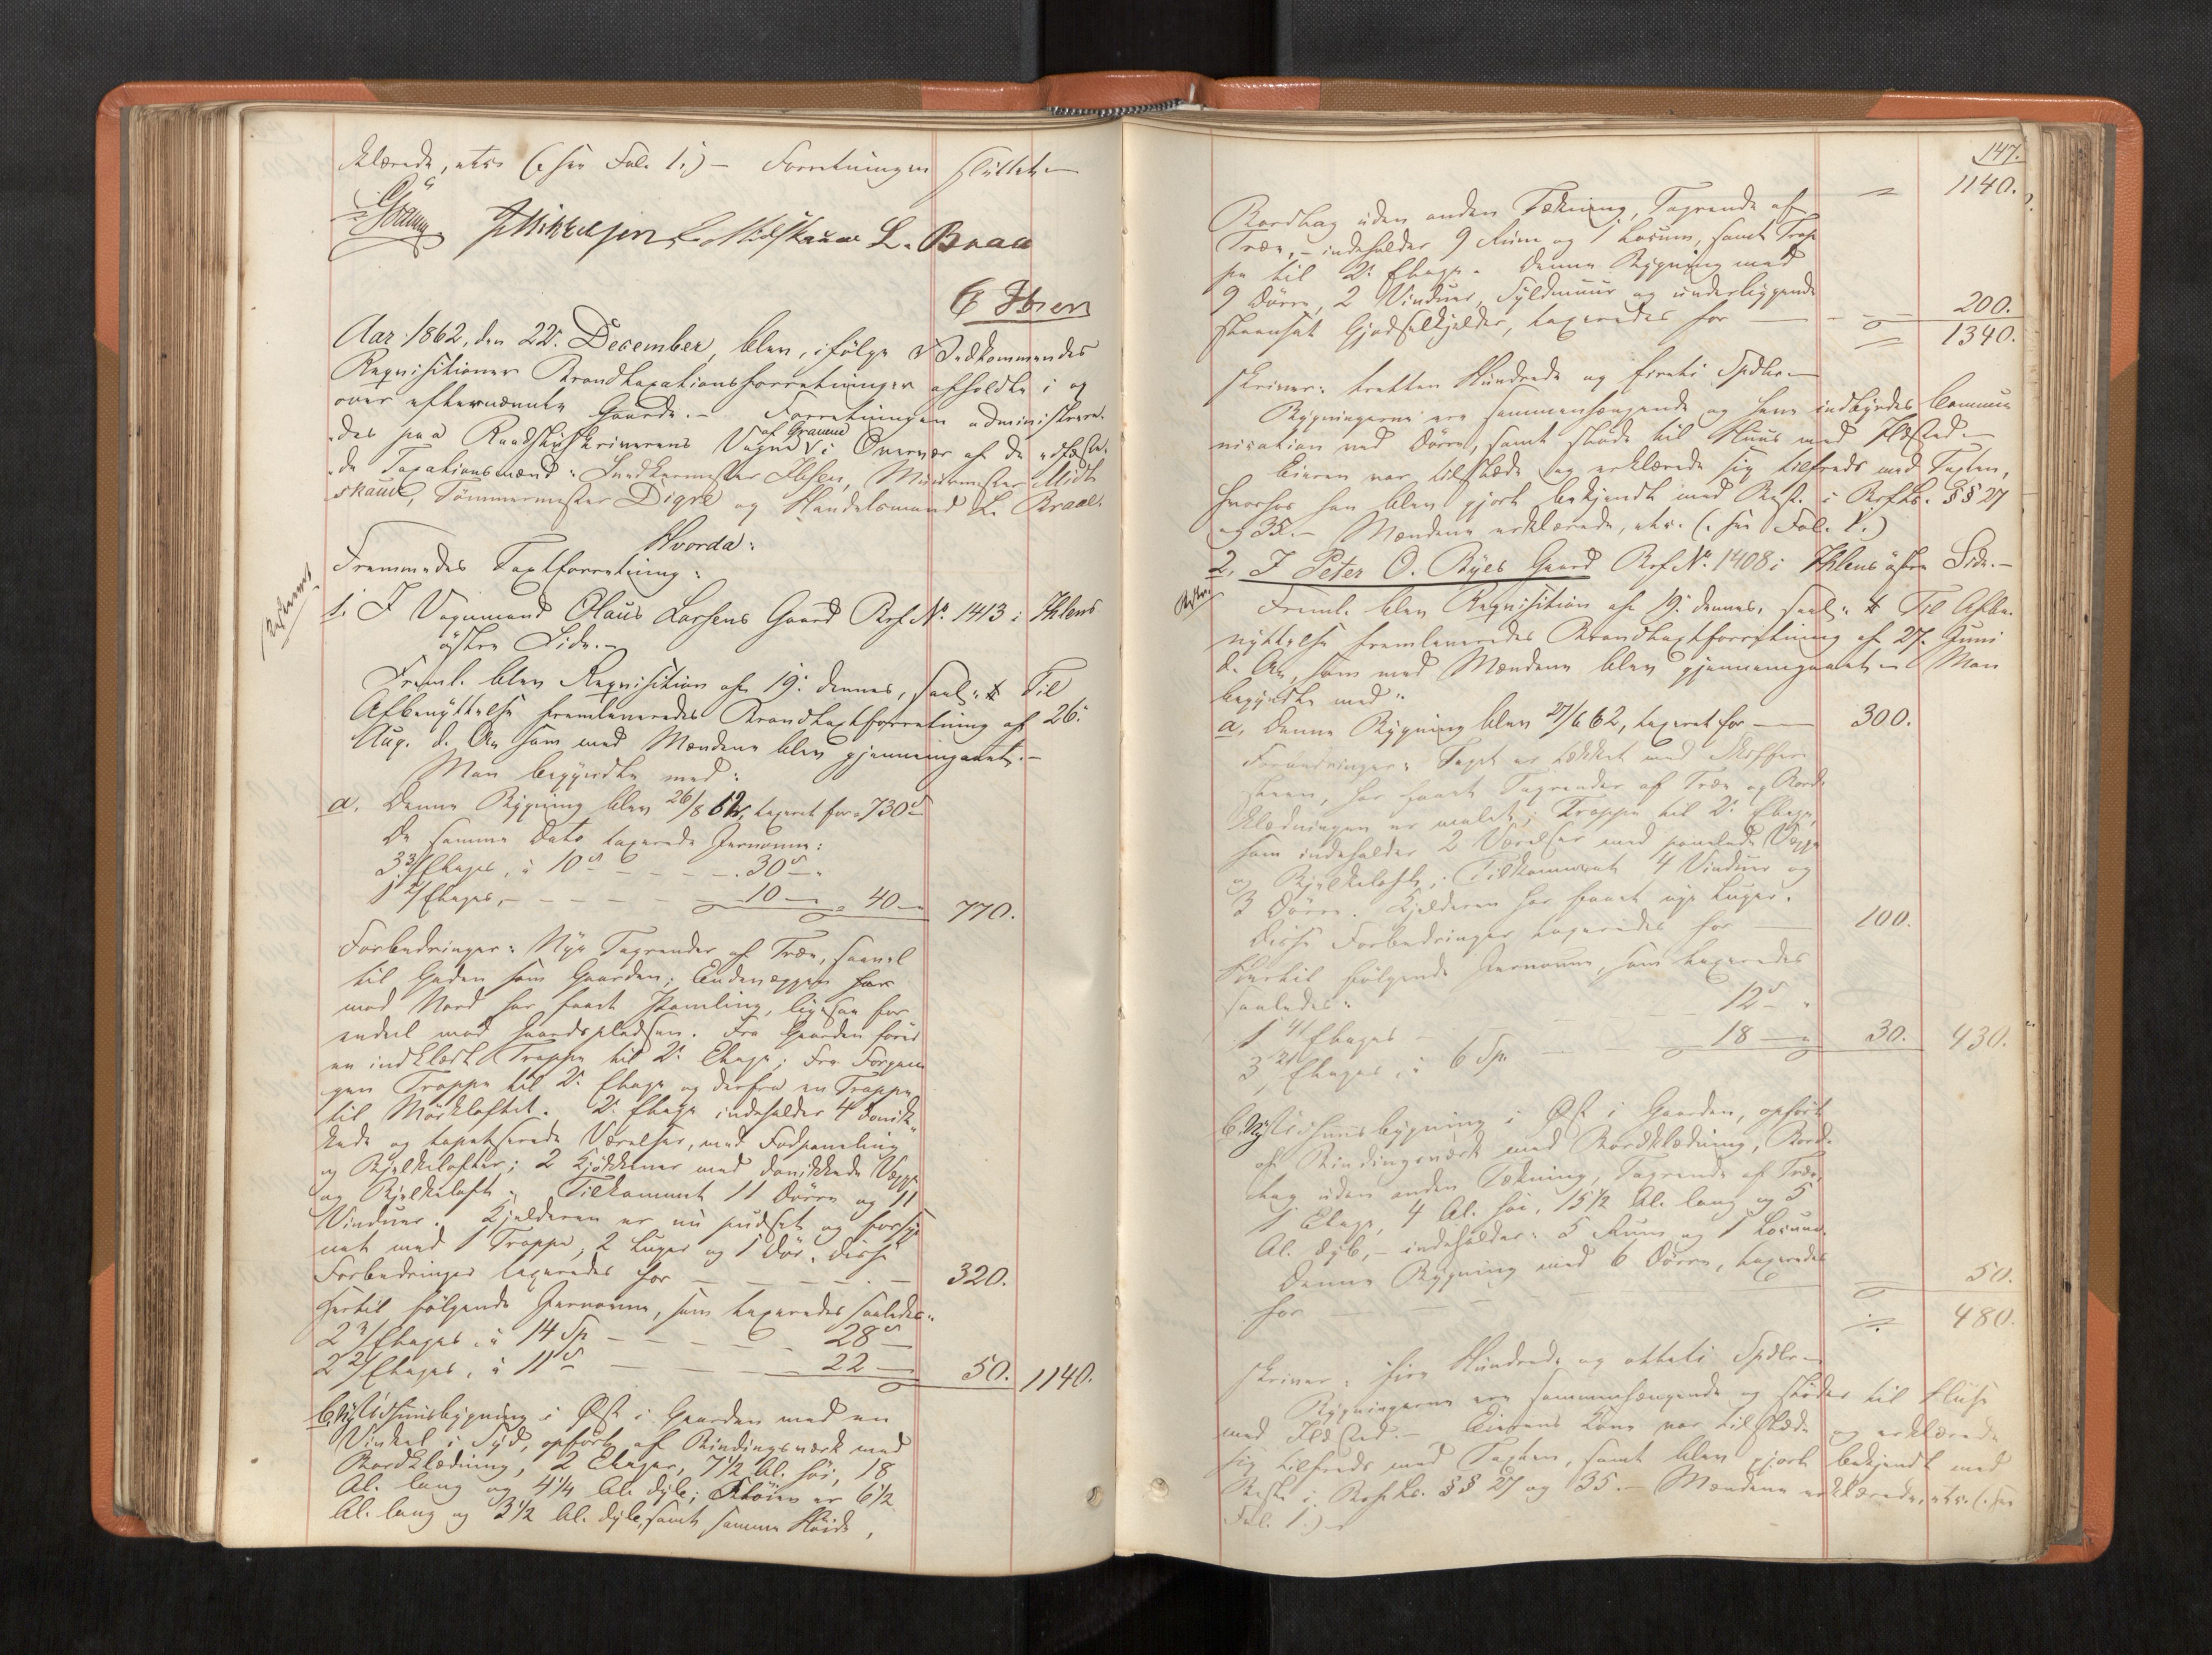 klærede, etc. (: see Fol. 1 :) – Forretningen sluttet. –
Graun J Mikkelsen L. Midtskaun L. Braa
C Ibsen
Aar 1862, den 22. December, blev, ifølge Vedkommendes
Requisitioner Brandtaxationsforretninger afholdte i og
over efternævnte Gaarde. – Forretningen administrere-
des paa Raadstuskriverens Vegne af Graun i Overvær af de edfæste-
de Taxationsmænd: Snedkermester Ibsen, Muurmester Midt-
skaun, Tømmermester Digre og Handelsmand L. Braae.
Hvorda:
Fremmedes Taxtforretning:
1. I Vognmand Olaus Larsens Gaard Brf. No. 1413 i Ihlens
østre Side. –
Freml. blev Requisition af 19. dennes, saal: Til
Afbenyttelse fremleveredes Brandtaxtforretning af 26.
Aug. d. A. som med Mændene blev gjennemgaaet. –
Man begyndte med:
a. Denne Bygning blev 26/8 62, taxeret for 730
De samme Dato taxerede Jernovne:
3 3/Etages, à 10 – – – 30 –
1 2/Etages, – – – – 10 – 40 – 770.
Forbedringer: Nye Tagrender af Træ, saavel
til Gaden som Gaarden; Endevæggen har
mod Nord har faaet Paneling, ligesaa for
endeel mod Gaardspladsen. Fra Gaarden fører
en indklædt Trappe til 2. Etage; fra Forgan-
gen Trappe til 2. Etage og derfra en Trappe
til Mørkloftet. 2. Etage indeholder 4 donik-
kede og tapetserede Værelser, med Fodpaneling
og Bjelkelofter; 2 Kjøkkener med donikkede Vægge
og Bjelkeloft; Tilkommet 11 Døre og 11
Vinduer. Kjelderen er nu pudset og forsy-
net med 1 Trappe, 2 Luger og 1 Dør. Disse
Forbedringer taxeredes for – – – – – 320.
Hertil følgende Jernovne, som taxeredes saaledes:
2 3/Etages, à 14 Sp – – – 28 –
2 2/Etages, à 11 – – – 22 – 50. 1140.
b. Ny Udhuusbygning i Øst i Gaarden med en
Vinkel i Syd, opført af Bindingsværk med
Bordklædning, 2 Etager, 7 1/2 Al. høi, 18
Al. lang og 4 1/4 Al. dyb; Fløien er 6 1/2
Al. lang og 3 1/2 Al. dyb, samt samme Høide,
147.
1140.
Bordtag uden anden Tækning, Tagrende af
Træ, – indeholder 9 Rum og 1 Locum, samt Trap-
pe til 2. Etage. Denne Bygning med
9 Døre, 2 Vinduer, Syldmuur og underliggende
steensat Gjødselkjelder, taxeredes for – – – 200.
1340.
skriver: tretten Hundrede og fireti Spdlr. –
Bygningerne ere sammenhængende og have indbyrdes Commu-
nication ved Døre, samt støde til Huus med Ildsted. –
Eieren var tilstede og erklærede sig tilfreds med Taxten,
hvorhos han blev gjort bekjendt med Best. i Brfl. §§ 27
og 35. – Mændene erklærede, etc. (: see Fol. 1. :)
2. I Peter O. Byes Gaard Brf. No. 1408 i Ihlens østre Side. –
Freml. blev Requisition af 19. dennes, saal: Til Afbe-
nyttelse fremleveredes Brandtaxtforretning af 27. Juni
d. A., som med Mændene blev gjennemgaaet. – Man
begyndte med:
a. Denne Bygning blev 27/6 62, taxeret for – 300.
Forandringer: Taget er tækket med Skiffer-
steen, har faaet Tagrender af Træ og Bord-
klædningen er malet; Trappe til 2. Etage,
som indeholder 2 Værelser med panelede Vægge
og Bjelkeloft; Tilkommet 4 Vinduer og
3 Døre. Kjelderen har faaet nye Luger.
Disse Forbedringer taxeredes for – 100.
Hertil følgende Jernovne, som taxeredes
saaledes:
1 4/Etages – – – 12
3 2/Etages, à 6 Sp. – – 18 – 30. 430.
b. Ny Udhuusbygning i Øst i Gaarden, opført
af Bindingsværk med Bordklædning, Bord-
tag uden anden Tækning, Tagrende af Træ,
1 Etage, 4 Al. høi, 15 1/2 Al. lang og 5
Al. dyb, – indeholder: 5 Rum og 1 Locum.
Denne Bygning med 6 Døre, taxeredes
for – – – 50.
480.
skriver: fire Hundrede og otteti Spdlr. –
Bygningerne ere sammenhængende og støder til Huse
med Ildsted. – Eierens Kone var tilstede og erklærede
sig tilfreds med Taxten, samt blev gjort bekjendt med
Best. i Brfl. §§ 27 og 35. – Mændene erklærede, etc. (: see
Fol. 1 :) –